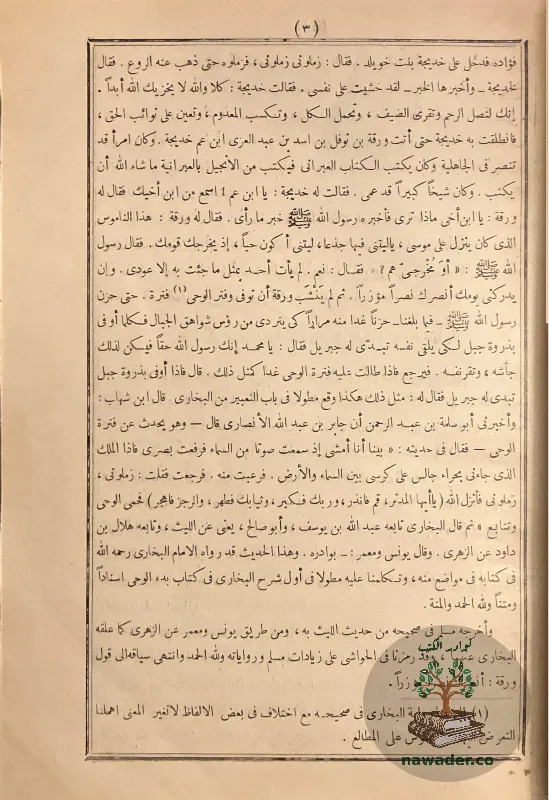 (٣)
فؤاده فدخل على خديجة بنت خويلد . فقال : زملونى زملونى ، فزملوه حتى ذهب عنه الروع . فقال
لخديجة ـ وأخبرها الخبر ـ لقد خشيت على نفسى . فقالت خديجة : كلا والله لا يخزيك الله أبداً .
إنك لتصل الرحم وتقرى الضيف ، وتحمل الكل ، وتكسب المعدوم ، وتعين على نوائب الحق ،
فانطلقت به خديجة حتى أتت ورقة بن نوفل بن اسد بن عبد العزى ابن عم خديجة . وكان امرأ قد
تنصر فى الجاهلية وكان يكتب الكتاب العبرانى فيكتب من الانجيل بالعبرانية ما شاء الله أن
يكتب . وكان شيخاً كبيراً قد عمى . فقالت له خديجة : يا ابن عم ! اسمع من ابن أخيك فقال له
ورقة : يا ابن أخى ماذا ترى فأخبره رسول الله ﷺ خبر ما رأى . فقال له ورقة : هذا الناموس
الذى كان ينزل على موسى ، ياليتنى فيها جذعا ، ليتنى أكون حياً ، إذ يخرجك قومك . فقال رسول
الله ﷺ : « أوَ مُخْرجىَّ هم ? » فقال : نعم . لم يأت أحد بمثل ما جئت به إلا عودى . وإن
يدركنى يومك أنصرك نصراً مؤزراً . ثم لم يَنْشَب ورقة أن توفى وفتر الوحى (١) فترة . حتى حزن
رسول الله ﷺ ـ فيما بلغنا ـ حزناً غدا منه مراراً كى يتردى من رؤس شواهق الجبال فكلما أوفى
بذروة جبل لكى يلقى نفسه تبدّى له جبريل فقال : يا محمد إنك رسول الله حقاً فيسكن لذلك
جأشه ، وتقر نفسه . فيرجع فاذا طالت عليه فترة الوحى غدا كمثل ذلك . قال فاذا أوفى بذروة جبل
تبدى له جبريل فقال له : مثل ذلك هكذا وقع مطولا فى باب التعبير من البخارى . قال ابن شهاب :
وأخبرنى أبو سلمة بن عبد الرحمن أن جابر بن عبد الله الأنصارى قال — وهو يحدث عن فترة
الوحى — فقال فى حديثه : « بينا أنا أمشى إذ سمعت صوتا من السماء فرفعت بصرى فاذا الملك
الذى جاءنى بحراء جالس على كرسى بين السماء والأرض . فرعبت منه . فرجعت فقلت : زملونى ،
زملونى فأنزل الله ( ياأيها المدثر ، قم فانذر ، وربك فكبر ، وثيابك فطهر ، والرجز فاهجر ) فحمى الوحى
وتتابع » ثم قال البخارى تابعه عبد الله بن يوسف ، وأبو صالح ، يعنى عن الليث ، وتابعه هلال بن
داود عن الزهرى . وقال يونس ومعمر : ـ بوادره . وهذا الحديث قد رواه الامام البخارى رحمه الله
فى كتابه فى مواضع منه ، وتكلمنا عليه مطولا فى أول شرح البخارى فى كتاب بدء الوحى اسناداً
ومتناً ولله الحمد والمنة .
وأخرجه مسلم فى صحيحه من حديث الليث به ، ومن طريق يونس ومعمر عن الزهرى كما علقه
البخارى عنهما ، وقد رمزنا فى الحواشى على زيادات مسلم ورواياته ولله الحمد وانتهى سياقه الى قول
ورقة : أنصرك
(١) البخارى فى صحيحه مع اختلاف فى بعض الالفاظ لا تغير المعنى اهملنا
التعرض على المطالع .
نوادر الكتب
nawader.co